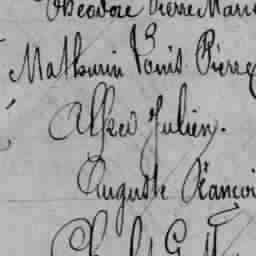 Théodore Pierre Marie
Mathurin Louis Pierre
Alfred Julien.
Auguste Françoi